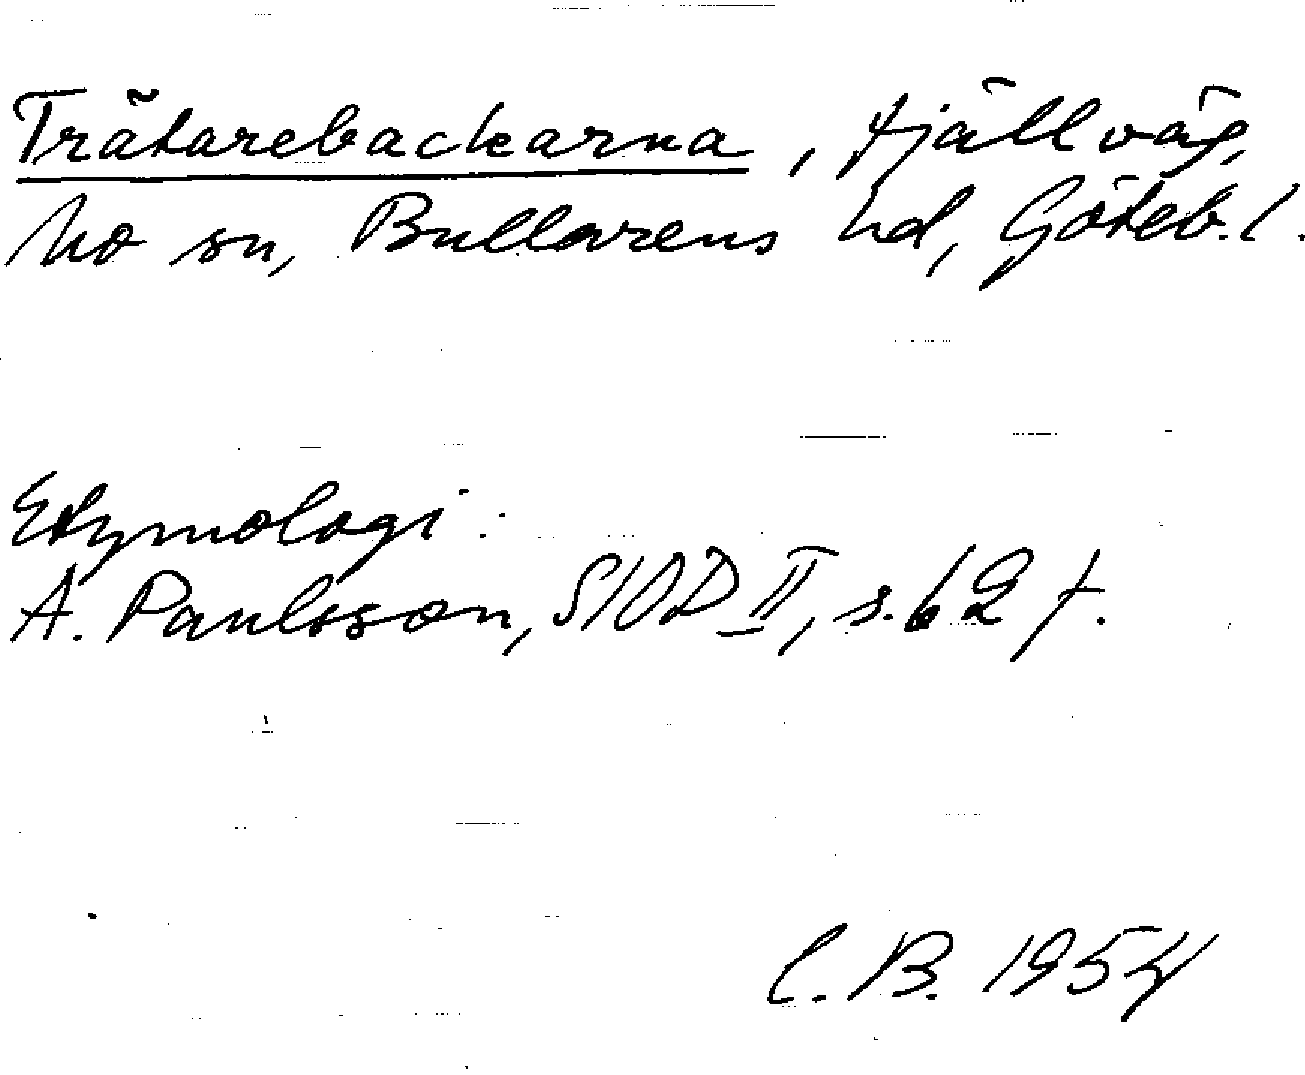 Trätarebackarna, fjällväg,
Mo sn, Bullarens hd, Göteb. l.
Etymologi:
A. Paulsson, SIOD II, s. 62 f.
C. B. 1954